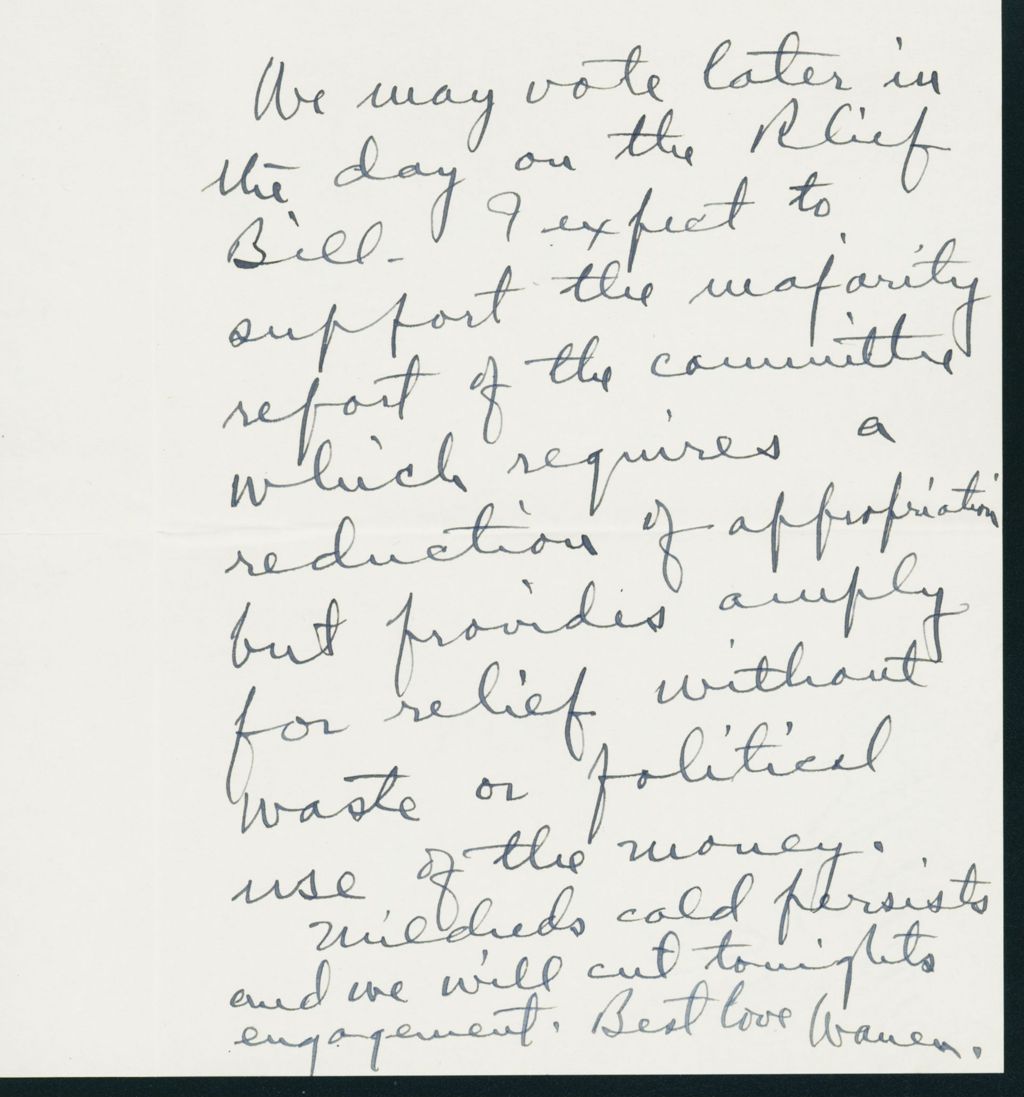 We may vote later in
the day on the Rlief
Bill - I expect to
support the majority
report of the committee
which requires a
reduction of appropriation
but provides amply
for relief without
waste or political
use of the money.
Mildreds cold persists
and we will cut tonights
engagement. Best love Warren.